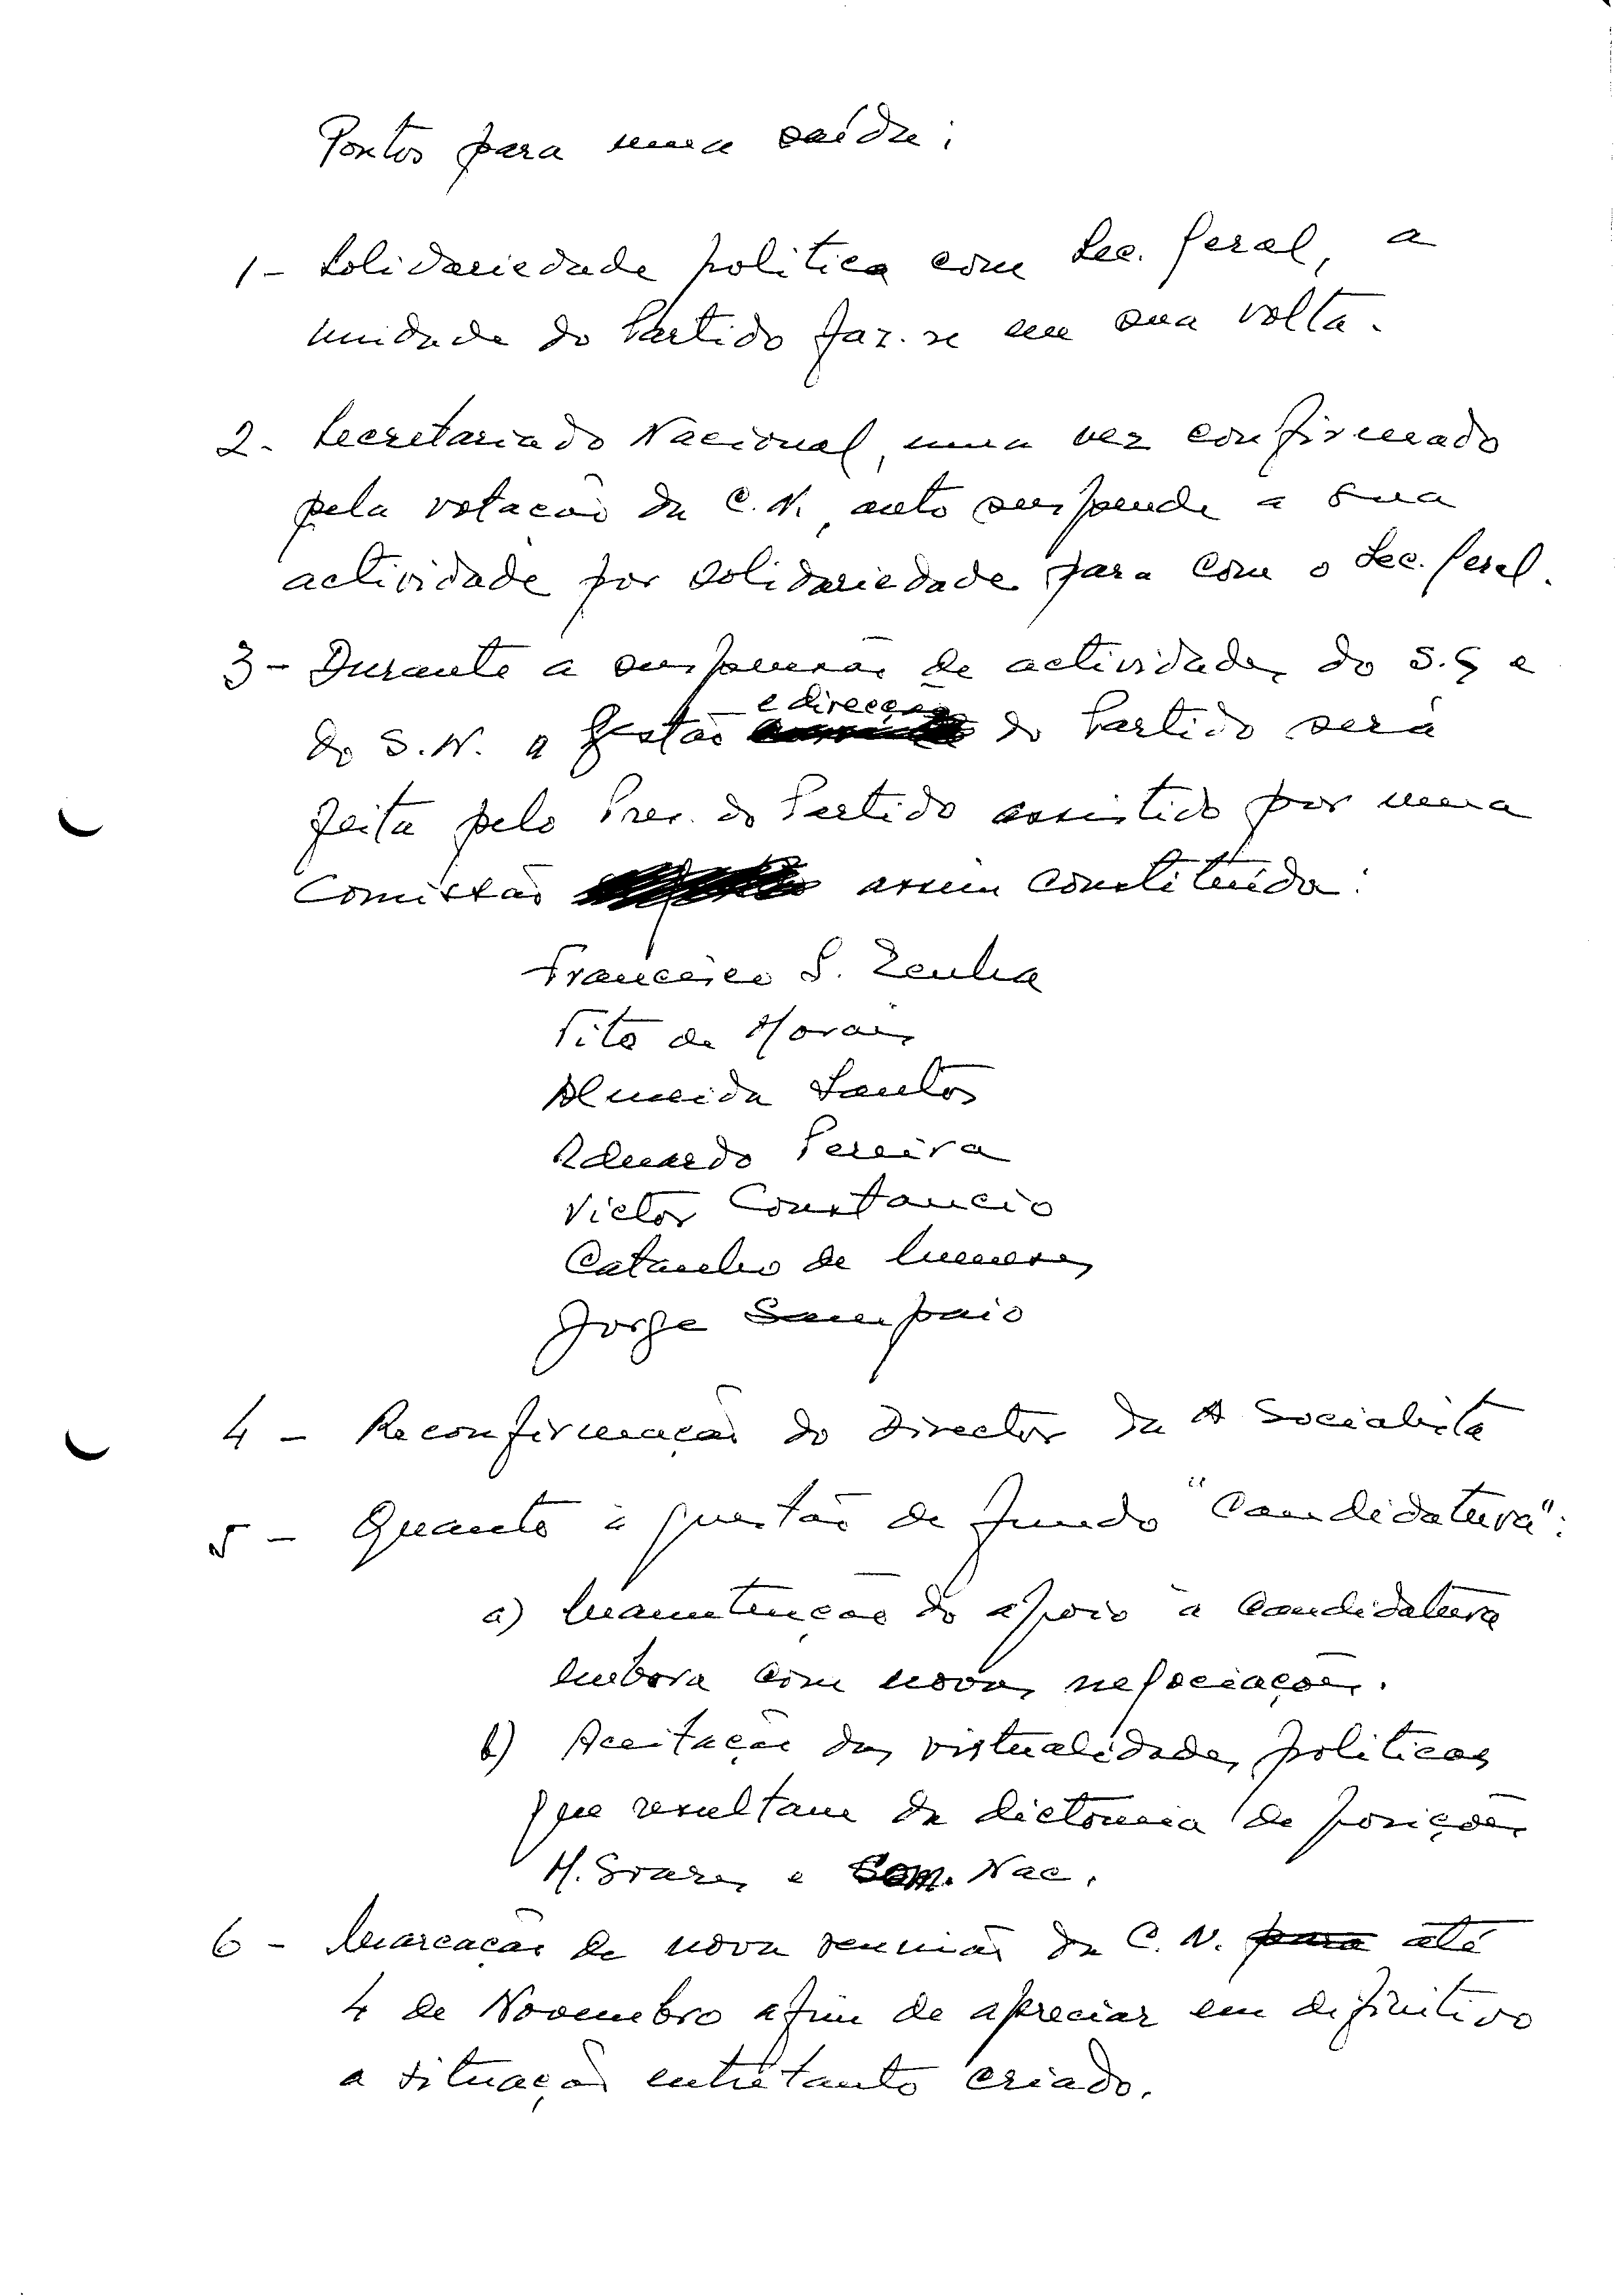 Pontos para uma saída:
1 - Solidariedade politica com Sec. Geral, a
unidade do Partido faz-se em sua volta.
2 - Secretariado Nacional, uma vez confirmado
pela votação da C.N., auto suspende a sua
actividade por solidariedade para com o Sec. Geral.
3 - Durante a suspensão de actividades do S.G e
do S.N. a gestão e direcção do Partido será
feita pelo Pres. do Partido assistido por uma
Comissão assim constituída:
Francisco S. Zenha
Tito de Morais
Almeida Santos
Eduardo Pereira
Victor Constancio
Catanho de Meneses
Jorge Sampaio
4 - Reconfirmação do Director da A Socialista
5 - Quanto à questão de fundo "Candidatura":
a) Manutenção do apoio à Candidatura
embora com novas negociações.
b) Aceitação das virtualidades politicas
que resultam da dictomia de posições
M. Soares e Com. Nac.
6 - Marcação de nova reunião da C.N. para até
4 de Novembro afim de apreciar em definitivo
a situação entretanto criado.